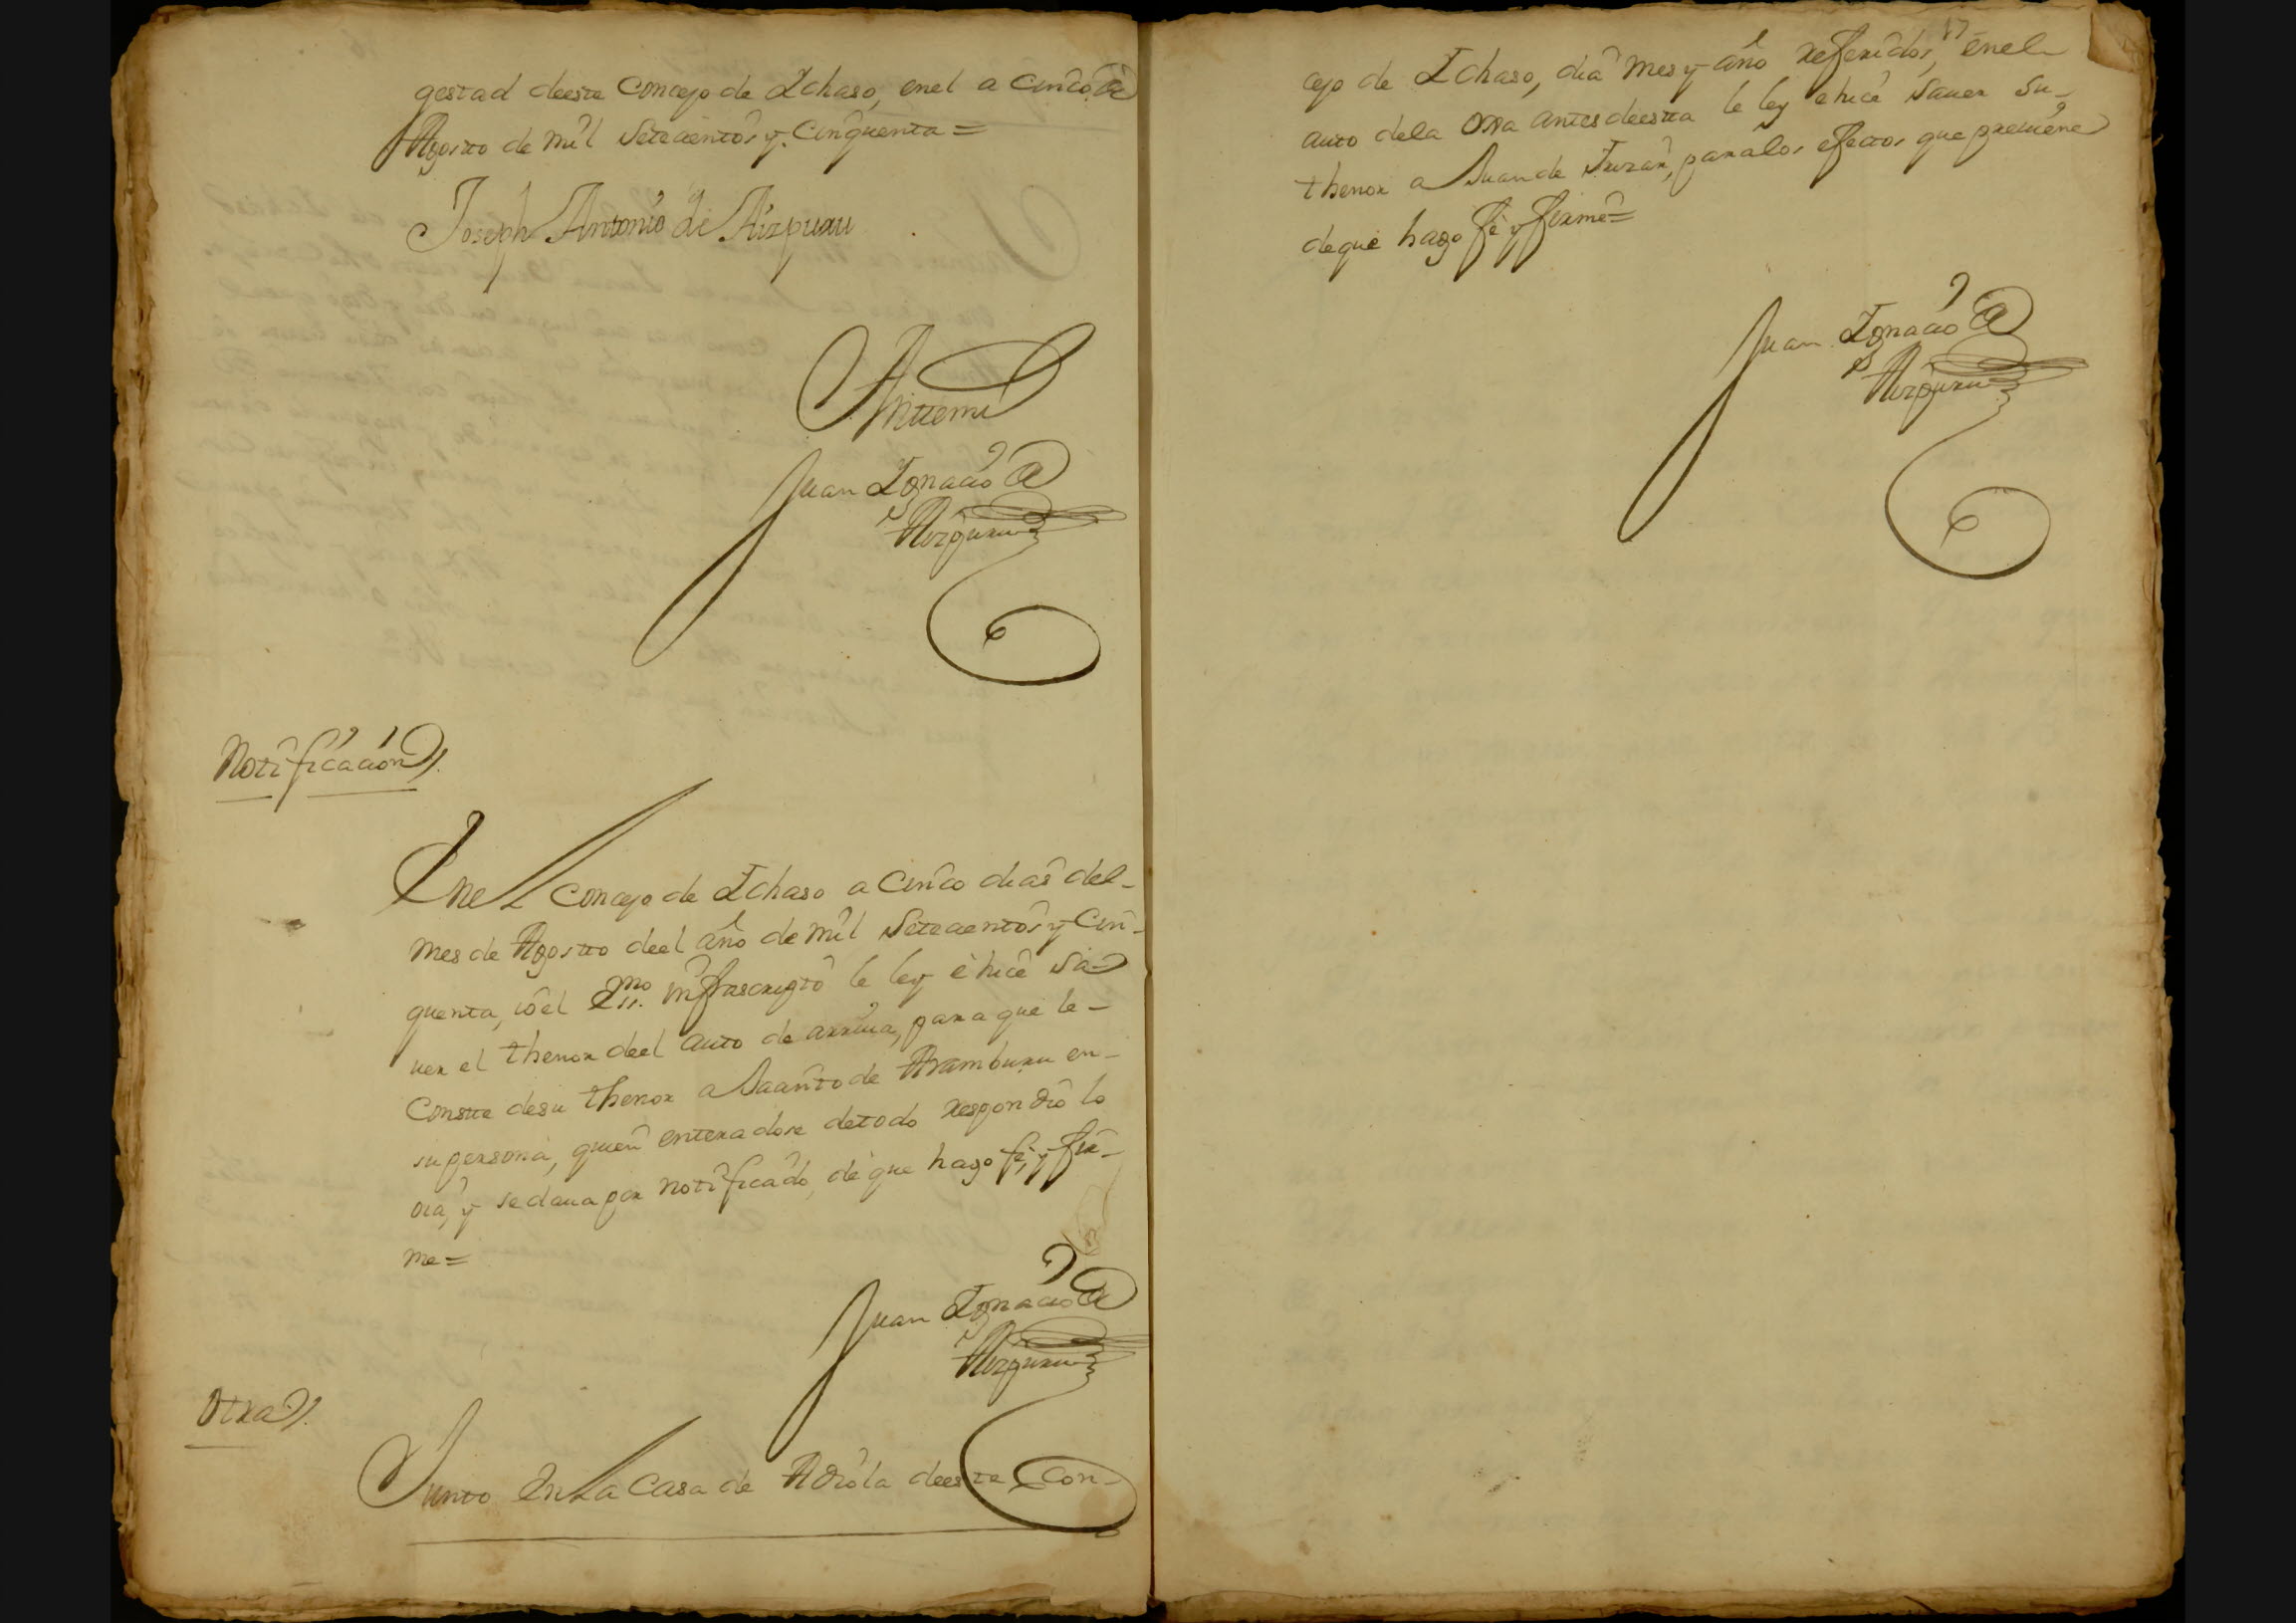 gestad deesta Concejo de Ichaso, enel a cinco de
Agosto de mil setecientos y cinquenta =
Joseph Antonio de Aizpuru
Antemi
Juan Ignacio de
Aizpuru
Notificacion
Enel concejo de Ichaso a cinco dias del-
mes de Agosto deel año de mil setecientos y cin-
quenta, io el Ess.no infrascripto le ley e hice sa-
uer el thenor deel auto de arriua, para que le-
conste desu thenor a Saanto de Aramburu en-
su persona, quien enteradose detodo respondio lo
oia, y se daua por notificado, de que hago fe, y fir-
me =
Juan Ignacio de
Aizpuru
Otra
Junto en la casa de Adiola deeste con-
17
cejo de Ichaso, dia mes y año referidos, enel
auto dela otra antes deesta le ley e hice sauer su-
thenor a Juan de, para los efectos que preuiene
de que hago fe y firme =
Juan Ignacio de
Aizpuru